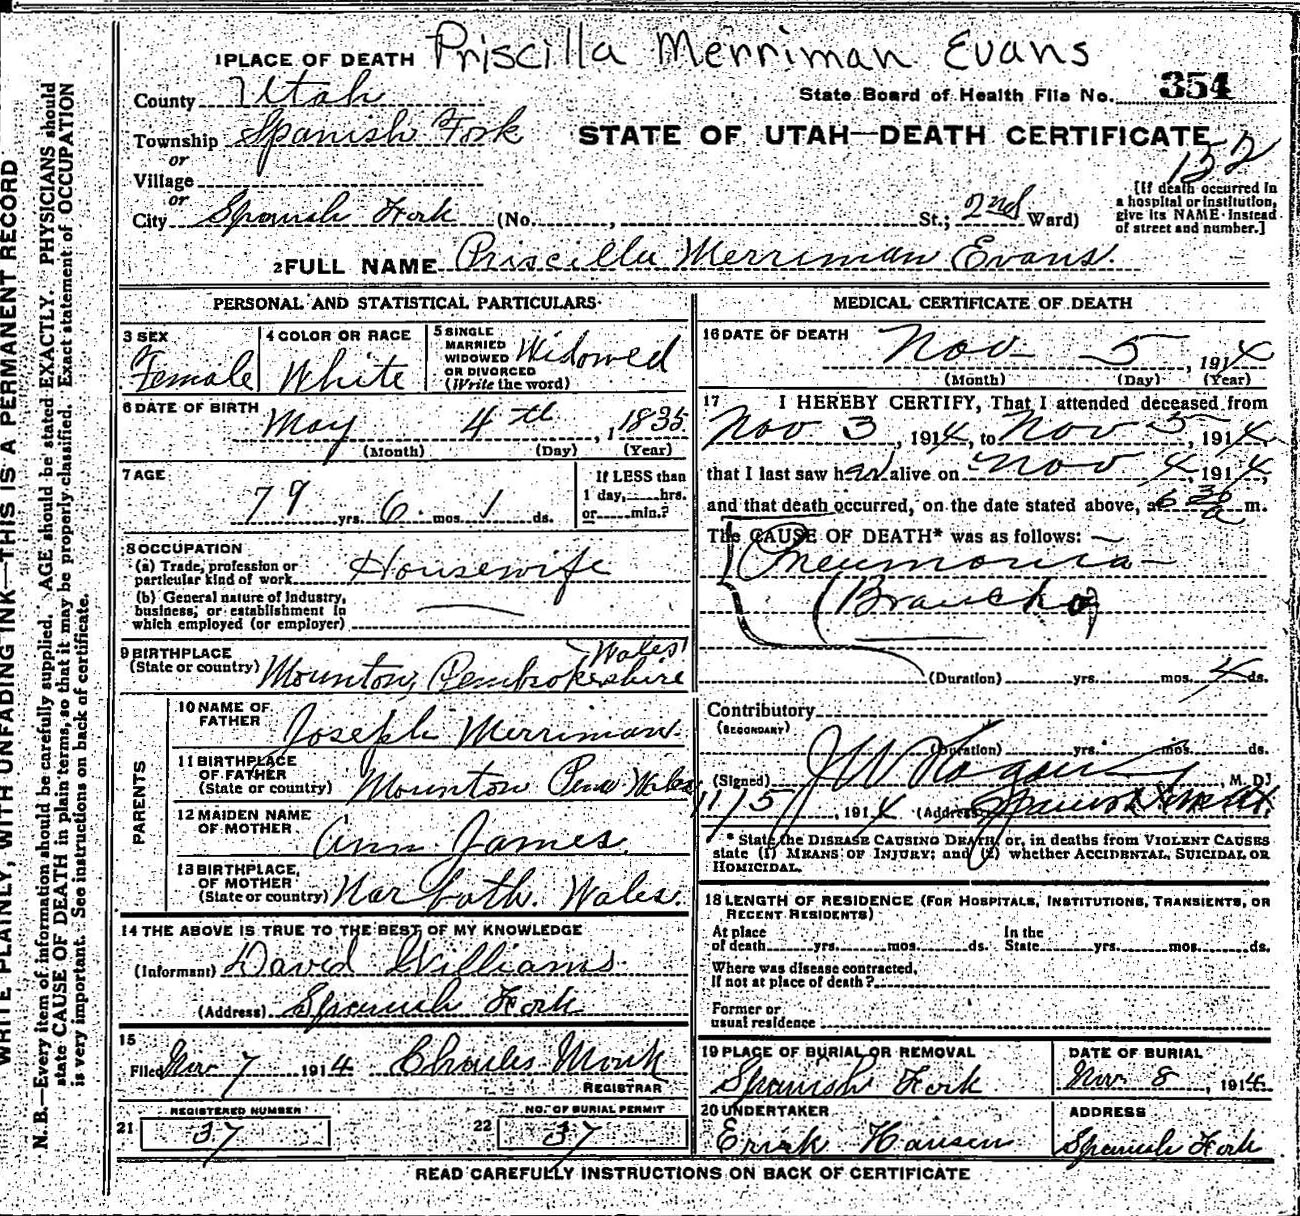 WRITE PLAINLY, WITH UNFADING INK—THIS IS A PERMANENT RECORD
N. B.—Every item of information should be carefully supplied. AGE should be stated EXACTLY. PHYSICIANS should
state CAUSE OF DEATH in plain terms, so that it may be properly classified. Exact statement of OCCUPATION
is very important. See instructions on back of certificate.
1 PLACE OF DEATH Priscilla Merriman Evans
County Utah
State Board of Health File No. 354
Township Spanish Fork
STATE OF UTAH—DEATH CERTIFICATE
or
Village
or
City Spanish Fork (No. , St.; 2nd Ward)
[If death occurred in
a hospital or institution,
give its NAME instead
of street and number.]
2 FULL NAME Priscilla Merriman Evans.
PERSONAL AND STATISTICAL PARTICULARS
3 SEX
Female
4 COLOR OR RACE
White
5 SINGLE
MARRIED
WIDOWED
OR DIVORCED
(Write the word)
Widowed
6 DATE OF BIRTH May 4th, 1835
(Month) (Day) (Year)
7 AGE
79 yrs. 6 mos. 1 ds.
If LESS than
1 day, hrs.
or min.?
8 OCCUPATION
(a) Trade, profession or
particular kind of work Housewife
(b) General nature of industry,
business, or establishment in
which employed (or employer)
9 BIRTHPLACE
(State or country) Mounton, Pembrokeshire Wales
PARENTS
10 NAME OF
FATHER Joseph Merriman
11 BIRTHPLACE
OF FATHER
(State or country) Mounton Wales
12 MAIDEN NAME
OF MOTHER Ann James
13 BIRTHPLACE,
OF MOTHER
(State or country) Narboth. Wales.
14 THE ABOVE IS TRUE TO THE BEST OF MY KNOWLEDGE
(Informant) David Williams
(Address) Spanish Fork
15
Filed Nov 7 1914 Charles Monk
REGISTRAR
REGISTERED NUMBER
21 37
NO. OF BURIAL PERMIT
22 37
MEDICAL CERTIFICATE OF DEATH
16 DATE OF DEATH Nov 5, 1914
(Month) (Day) (Year)
17 I HEREBY CERTIFY, That I attended deceased from
Nov 3, 1914, to Nov 5, 1914,
that I last saw her alive on Nov 4, 1914,
and that death occurred, on the date stated above, at 6 30 a m.
The CAUSE OF DEATH* was as follows:
Pneumonia
(Duration) yrs. mos. 4 ds.
Contributory
(SECONDARY)
(Duration) yrs. mos. ds.
(Signed) M. D.
11/5, 1914 (Address) Spanish Fork
* State the DISEASE CAUSING DEATH, or, in deaths from VIOLENT CAUSES
state (1) MEANS OF INJURY; and (2) whether ACCIDENTAL, SUICIDAL OR
HOMICIDAL.
18 LENGTH OF RESIDENCE (FOR HOSPITALS, INSTITUTIONS, TRANSIENTS, OR
RECENT RESIDENTS)
At place
of death yrs. mos. ds.
In the
State yrs. mos. ds.
Where was disease contracted,
If not at place of death?
Former or
usual residence
19 PLACE OF BURIAL OR REMOVAL
Spanish Fork
DATE OF BURIAL
Nov. 8, 1914
20 UNDERTAKER
Erick Hansen
ADDRESS
Spanish Fork
READ CAREFULLY INSTRUCTIONS ON BACK OF CERTIFICATE